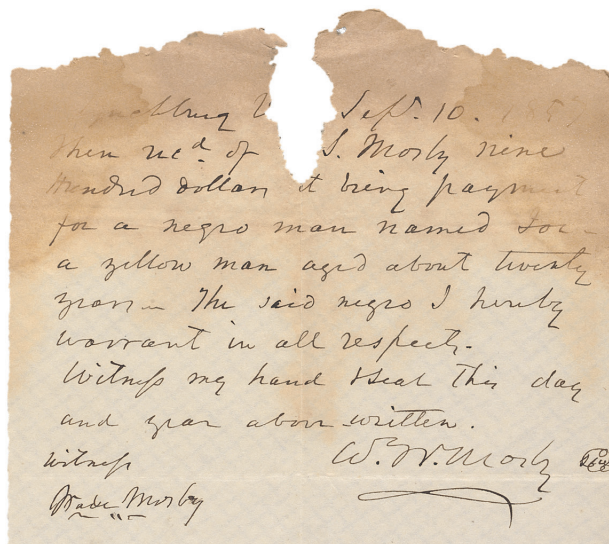 Sept. 10.
then rec'd of S. Mosby nine
Hundred dollars it being payment
for a negro man named
a yellow man aged about twenty
years — The said negro I hereby
warrant in all respects.
Witness my hand & seal this day
and year above written.
witness Wm. W. Mosby
Wade Mosby